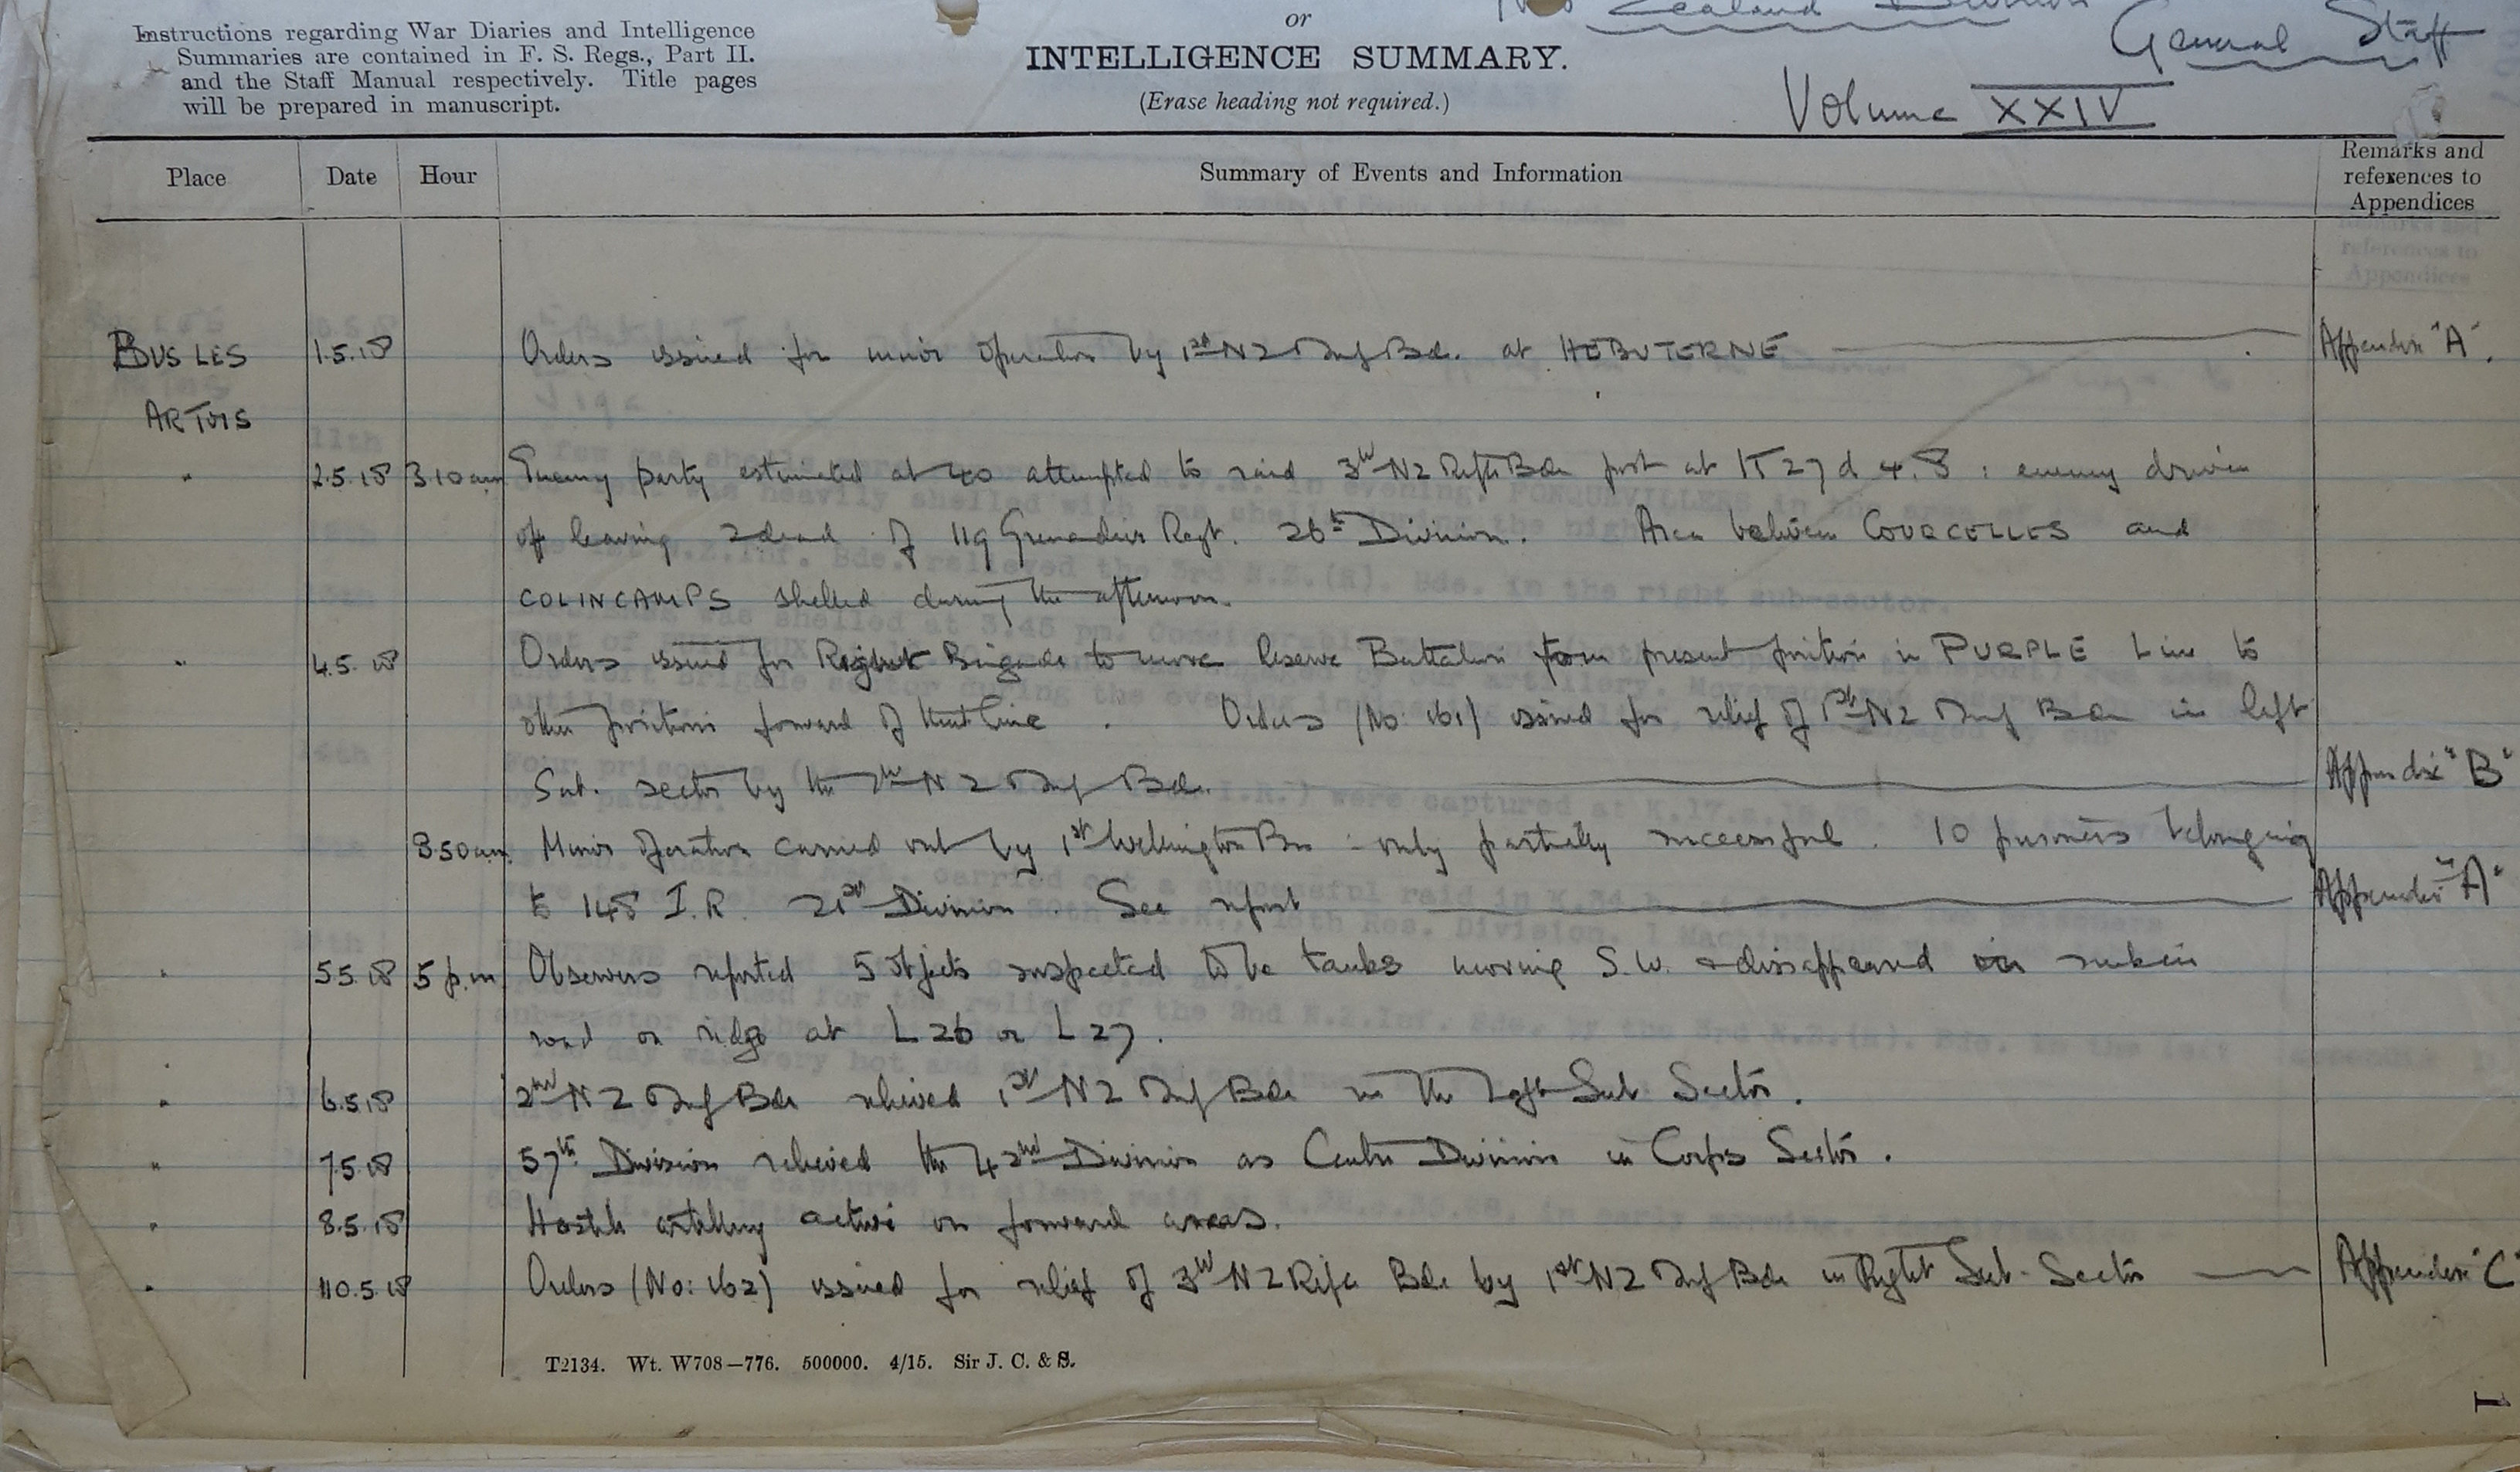 or
New Zealand Division
General Staff
Instructions regarding War Diaries and Intelligence
Summaries are contained in F. S. Regs., Part II.
and the Staff Manual respectively. Title pages
will be prepared in manuscript.
INTELLIGENCE SUMMARY.
(Erase heading not required.)
Volume XXIV
Place Date Hour Summary of Events and Information Remarks and references to Appendices
BUS LES 1.5.18 Orders issued for minor operation by 1st NZ Inf Bde. at HEBUTERNE Appendix "A".
ARTOIS
" 2.5.18 3.10 am Enemy party estimated at 40 attempted to raid 3rd NZ Rifle Bde post at K 27 d 4.8 : enemy driven
off leaving 2 dead of 119 Grenadier Regt. 26th Division. Area between COURCELLES and
COLINCAMPS shelled during the afternoon.
" 4.5.18 Orders issued for Right Brigade to move Reserve Battalion from present position in PURPLE Line to
other positions forward of that line. Orders (No: 161) issued for relief of 1st NZ Inf Bde in left
Sub. sector by the 2nd NZ Inf Bde. Appendix "B"
3.50 am. Minor operation carried out by 1st Wellington Bn : only partially successful. 10 prisoners belonging
to 148 I.R. 21st Division. See report Appendix "A"
" 5.5.18 5 p.m Observers reported 5 objects suspected to be tanks moving S.W. & dissappeared in sunken
road on ridge at L 26 or L 27.
" 6.5.18 2nd NZ Inf Bde relieved 1st NZ Inf Bde in the Left Sub Sector.
" 7.5.18 57th Division relieved the 42nd Division as Centre Division in Corps Sector.
" 8.5.18 Hostile artillery active on forward areas.
" 10.5.18 Orders (No: 162) issued for relief of 3rd NZ Rifle Bde by 1st NZ Inf Bde in Right Sub-Sector Appendix "C"
T2134. Wt. W708—776. 500000. 4/15. Sir J. C. & S.